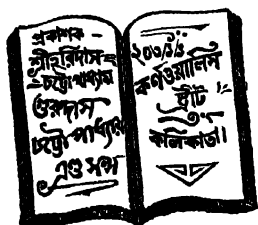 প্রকাশক —
শ্রীহরিদাস
চট্টোপাধ্যায়
গুরুদাস
চট্টোপাধ্যায়
এণ্ড সন্স
২০৩।১।১
কর্ণওয়ালিস
ষ্ট্রীট
কলিকাতা।